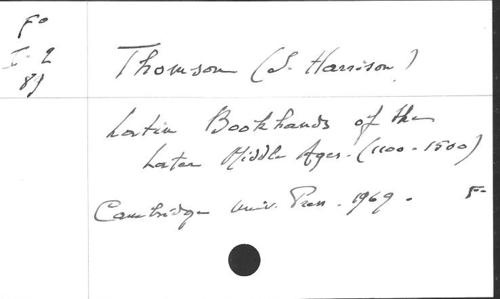 Fo
I-2
89
Thomson (S. Harrison)
Latin Bookhands of the
Later Middle Ages. (1100-1500)
Cambridge Univ. Press. 1969. F-